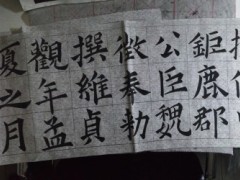 鉅鹿郡
公臣魏
徵奉勅
撰維貞
觀年孟
夏之月